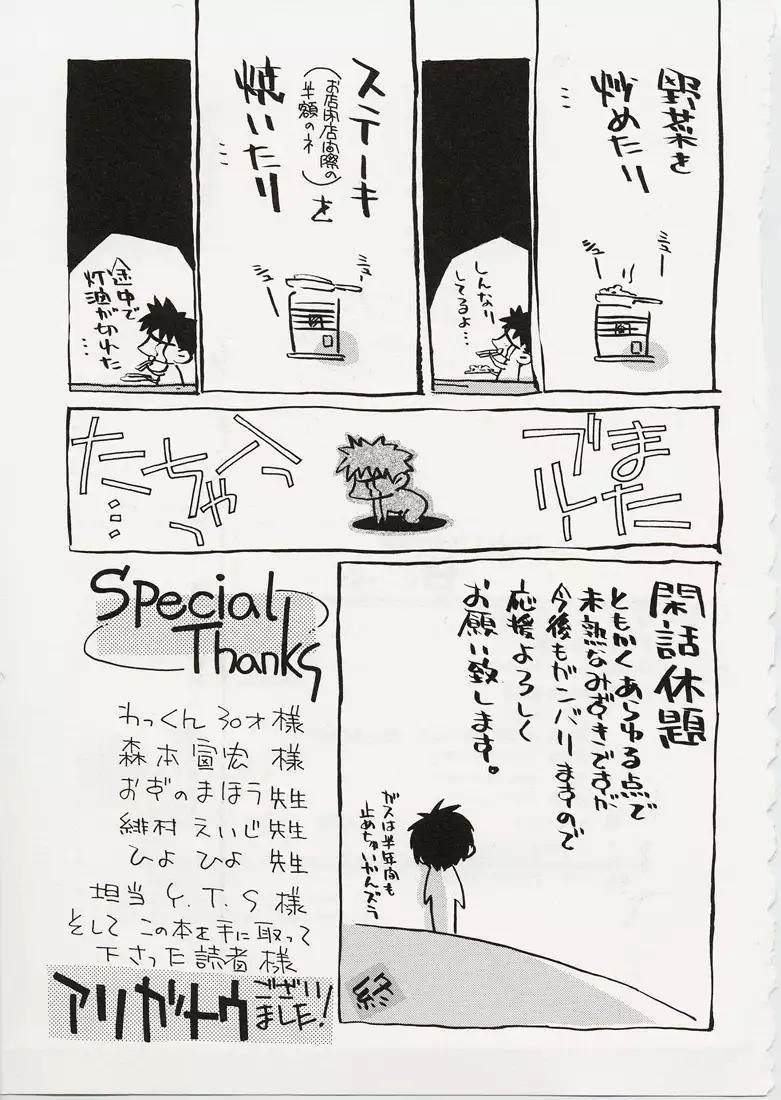 野菜を
炒めたり
…
ミュー
シュー
しんなり
してるよ…
ステーキ
(お店閉店間際の
半額のネ)
を
焼いたり
…
ミュー
シュー
途中で
灯油が切れた
…
また
ブルー
入っ
ちゃっ
た…
閑話休題
ともかくあらゆる点で
未熟なみずきですが
今後もガンバリますので
応援よろしく
お願い致します。
ガスは半年間も
止めちゃいかんズラ
終
Special
Thanks
わっくん30才様
森本宣宏 様
おぎのまほう先生
緋村えいじ先生
ひよひよ 先生
担当 Y.T.S 様
そして この本を手に取って
下さった読者様
アリガトウございました!